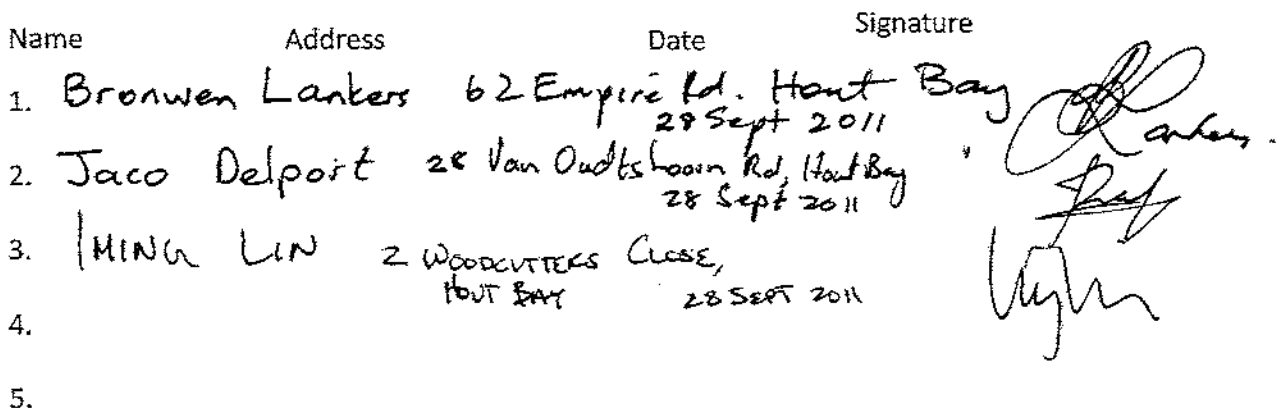 Name Address Date Signature
1. Bronwen Lankers 62 Empire Rd. Hout Bay
28 Sept 2011
2. Jaco Delport 28 Van Oudtshoorn Rd, Hout Bay
28 Sept 2011
3. IMING LIN 2 WOODCUTTERS CLOSE,
HOUT BAY 28 SEPT 2011
4.
5.